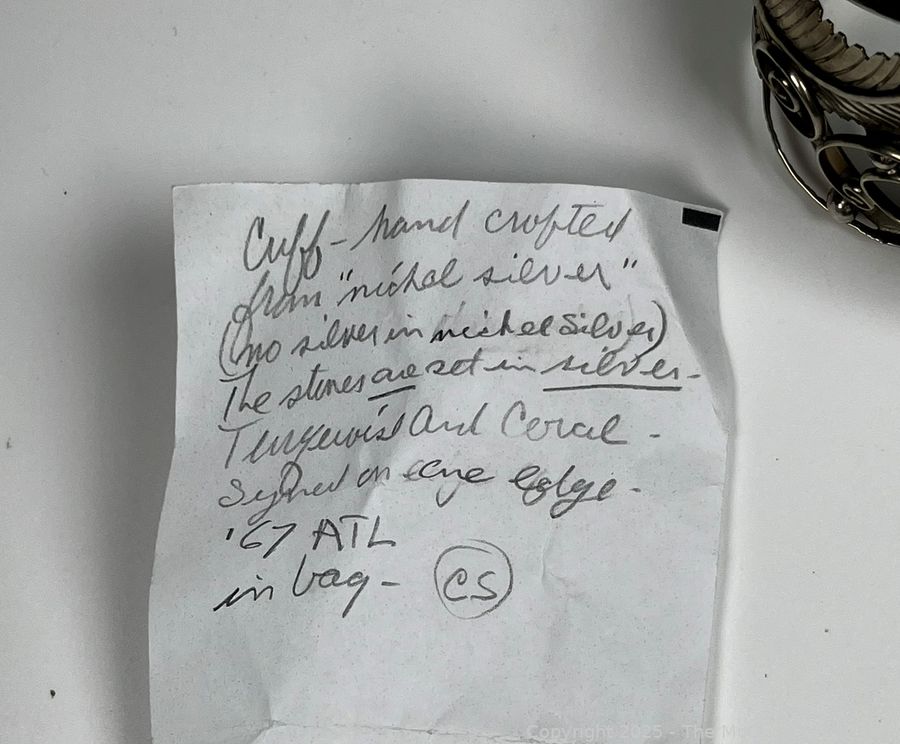 Cuff - hand crafted
from "nickel silver"
(no silver in nickel Silver)
The stones are set in silver -
Turquoise And Coral -
Signed on one edge -
'67 ATL
in bag -
CS
Copyright 2025 - The M